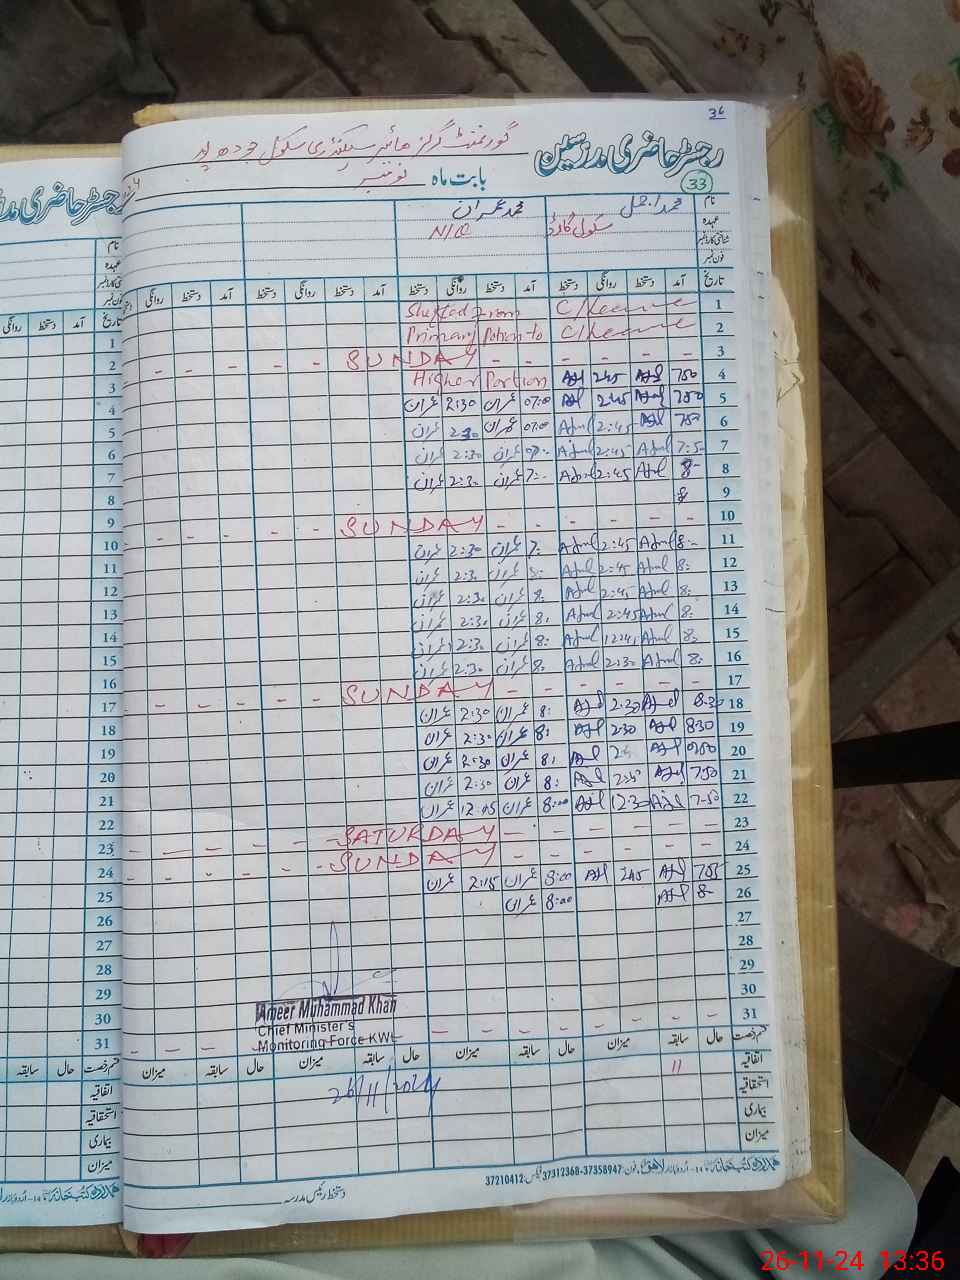 36
رجسٹر حاضری مدرسین گورنمنٹ گرلز ہائیر سیکنڈری سکول جودھ پور
33 بابت ماہ نومبر
نام محمد اجمل محمد عمران
عہدہ سکول گارڈ N/Q
شناختی کارڈ نمبر
فون نمبر
تاریخ آمد دستخط روانگی دستخط آمد دستخط روانگی دستخط آمد دستخط روانگی دستخط آمد دستخط روانگی
1 C/Leave Shifted From
2 C/Leave Primary Potion to
3 - - - - - - SUNDAY - - - - -
4 750 Ajl 245 Ajl Higher Portion
5 750 Ajml 245 Ajl 07:00 عمران 2:30 عمران
6 750 Ajl 2:45 Ajml 07:00 عمران 2:30 عمران
7 7:5- Ajml 2:45 Ajml عمران 2:30 عمران
8 8- Ajml 2:45 Ajml 7:- عمران 2:3. عمران
9 8
10 - - - - - - SUNDAY - - - - -
11 8:- Ajml 2:45 Ajml 7: عمران 2:30 عمران
12 8: Ajml 2:45 Ajml 8: عمران 2:3. عمران
13 8: Ajml 2:45 Ajml 8: عمران 2:3. عمران
14 8: Ajml 2:45 Ajml 8: عمران 2:3. عمران
15 8: Ajml Ajml 8: عمران 2:3. عمران
16 8: Ajml 2:30 Ajml 8: عمران 2:3. عمران
17 - - - - - - SUNDAY - - - - -
18 8:30 Ajl 2:30 Ajl 8: عمران 2:30 عمران
19 830 Ajl 230 Ajl 8: عمران 2:30 عمران
20 Ajl Ajl 8: عمران 2:30 عمران
21 750 Ajl Ajl 8: عمران 2:30 عمران
22 7-50 Ajl 12:30 Ajl 8:00 عمران 12:05 عمران
23 - - - - - - SATURDAY - - - - -
24 - - - - - - SUNDAY - - - - -
25 755 Ajl 245 Ajl 8:00 عمران 2:15 عمران
26 8- Ajl 8:00 عمران
27
28
29
30
31
Ameer Muhammad Khan
Chief Minister's
Monitoring Force KWL
قسم رخصت حال سابقہ میزان حال سابقہ میزان حال سابقہ میزان حال سابقہ میزان
اتفاقیہ 11
استحقاقیہ
بیماری
میزان
26/11/2024
دستخط رئیس مدرسہ
فون: 37358947-37312368 فیکس: 37210412
رجسٹر حاضری
نام
عہدہ
فون نمبر
تاریخ آمد دستخط روانگی
1
2
3
4
5
6
7
8
9
10
11
12
13
14
15
16
17
18
19
20
21
22
23
24
25
26
27
28
29
30
31
قسم رخصت حال سابقہ میزان
اتفاقیہ
استحقاقیہ
بیماری
میزان
26-11-24 13:36